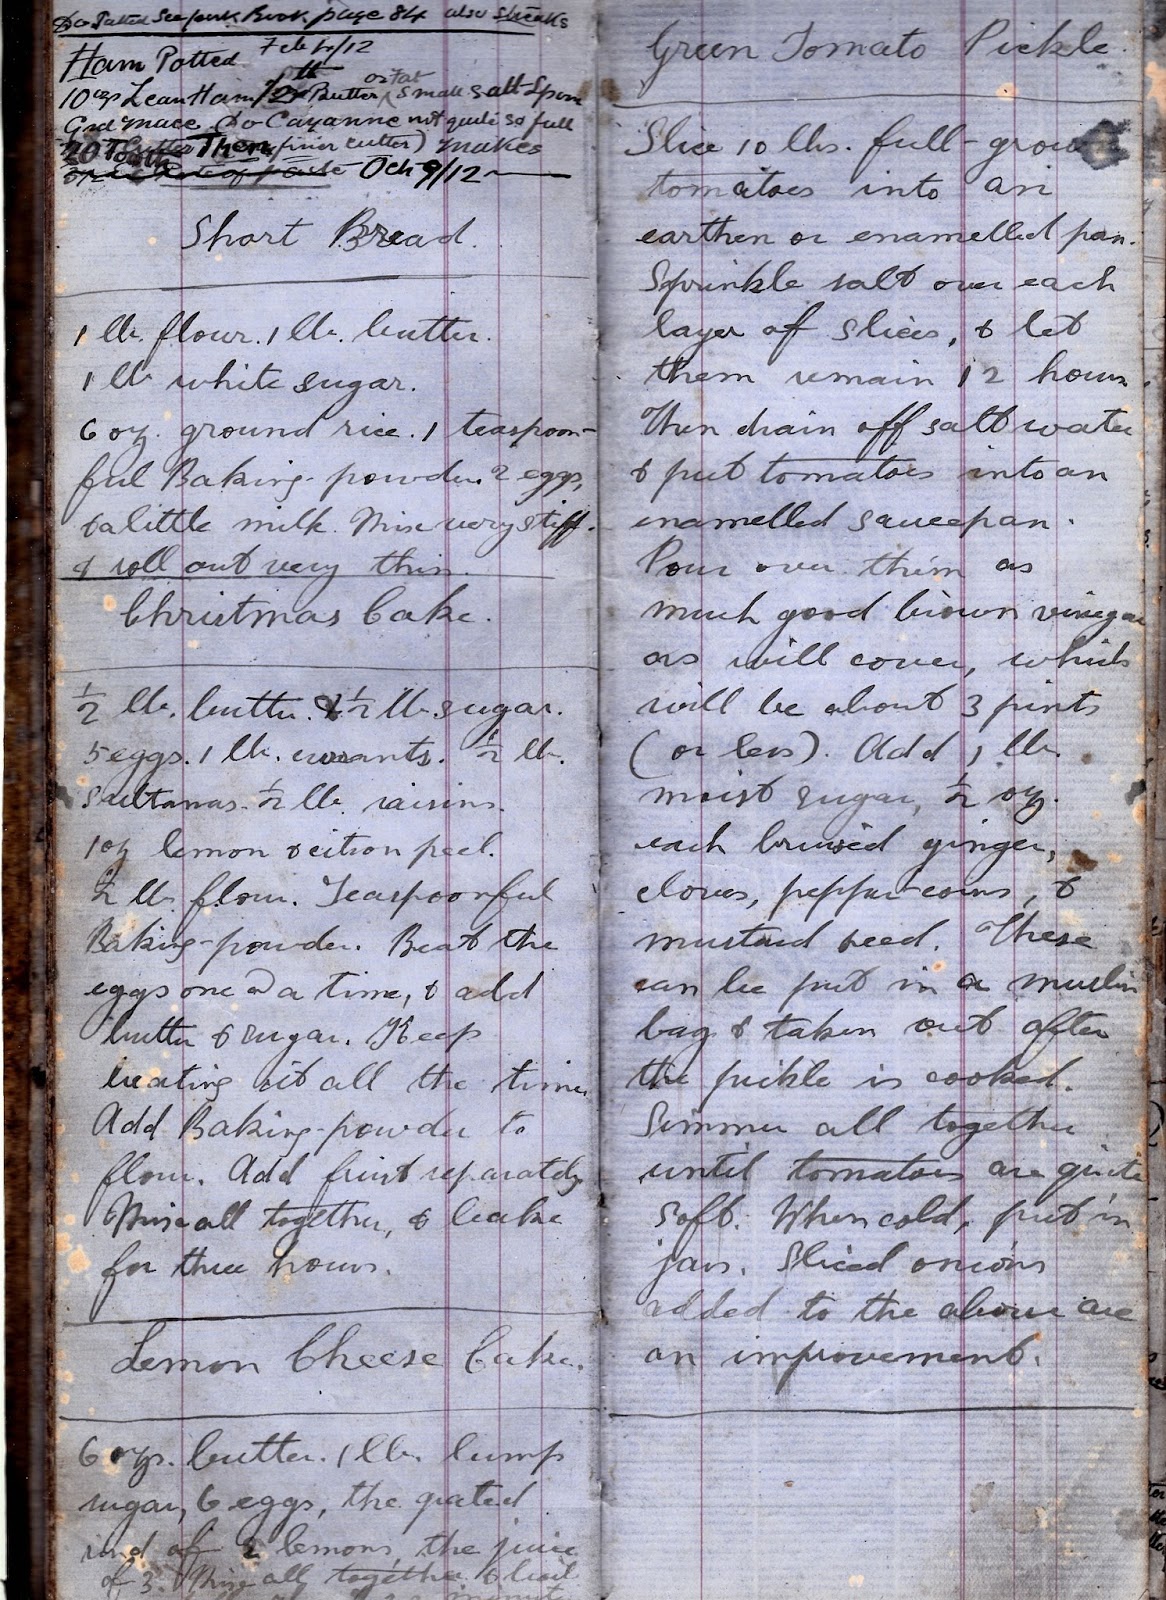 Do Potted See pork Book page 84 also Steaks
Ham Potted Feb /12
10 ozs Lean Ham Butter or Fat small salt spoon
Grd mace Do Cayanne not quite so full
20 Tooth Then (finer cutter) makes
of paste Oct 9/12
Short Bread.
1 lb. flour. 1 lb. butter.
1 lb white sugar.
6 oz. ground rice. 1 teaspoon-
ful Baking-powder. 2 eggs,
& a little milk. Mix very stiff.
& roll out very thin.
Christmas Cake.
½ lb. butter. & ½ lb. sugar.
5 eggs. 1 lb. currants. ½ lb.
Sultanas. ½ lb. raisins.
1 oz lemon & citron peel.
½ lb. flour. Teaspoonful
Baking-powder. Beat the
eggs one a time, & add
butter & sugar. Keep
beating it all the time
Add Baking-powder to
flour. Add fruit separately
Mix all together, & bake
for three hours.
Lemon Cheese Cake.
6 ozs. butter. 1 lb. lump
sugar, 6 eggs, the grated
rind of 2 lemons, the juice
of 3. Mix all together & boil
Green Tomato Pickle.
Slice 10 lbs. full-grown
tomatoes into an
earthen or enamelled pan.
Sprinkle salt over each
layer of slices, & let
them remain 12 hours
Then drain off salt water
& put tomatoes into an
enamelled saucepan.
Pour over them as
much good brown vinegar
as will cover, which
will be about 3 pints
(or less). Add 1 lb.
moist sugar, ½ oz.
each bruised ginger,
cloves, pepper-corns, &
mustard seed. These
can be put in a muslin
bag & taken out after
the pickle is cooked.
Simmer all together
until tomatoes are quite
soft. When cold, put in
jars. Sliced onions
added to the above are
an improvement.